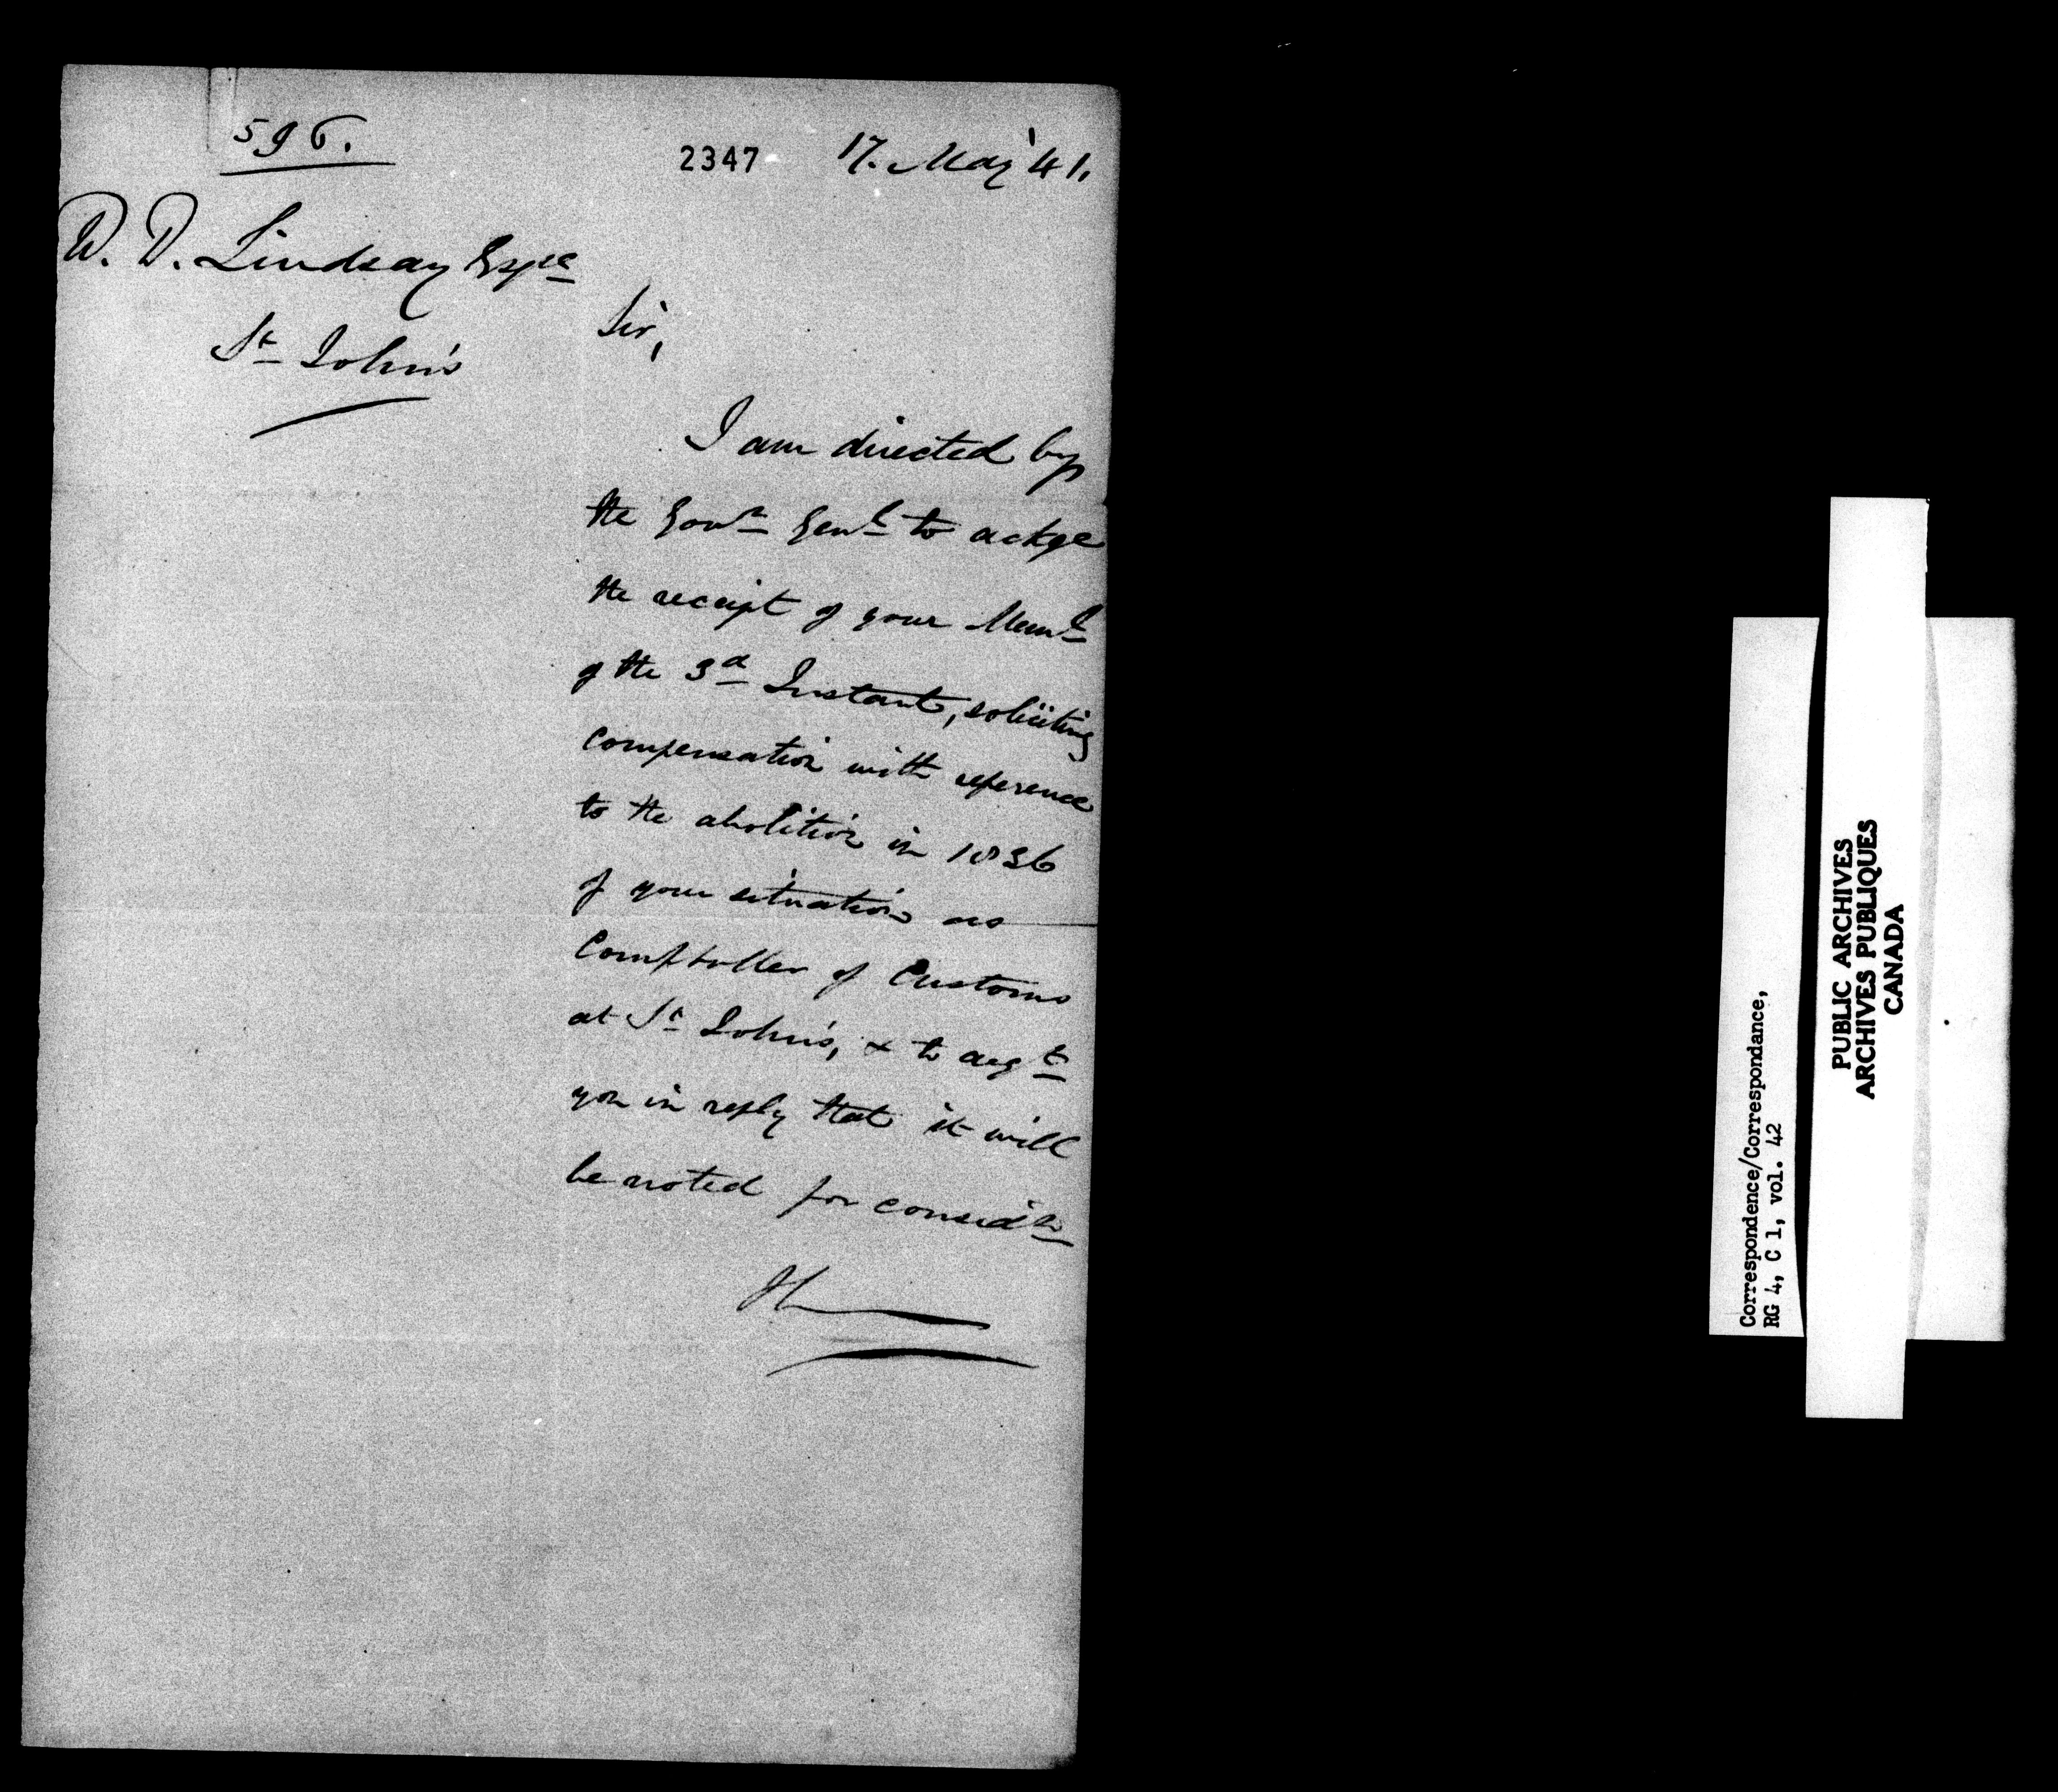 596.
2347
17. May '41.
W. D. Lindsay Esqre
St Johns
Sir,
I am directed by
the Govr Genl to ackge
the receipt of your Meml
of the 3d Instant, soliciting
compensation with reference
to the abolition in 1836
of your situation as
Comptroller of Customs
at St John's, & to
you in reply that it will
be noted for considn
PUBLIC ARCHIVES
ARCHIVES PUBLIQUES
CANADA
Correspondence/Correspondance,
RG 4, C 1, vol. 42